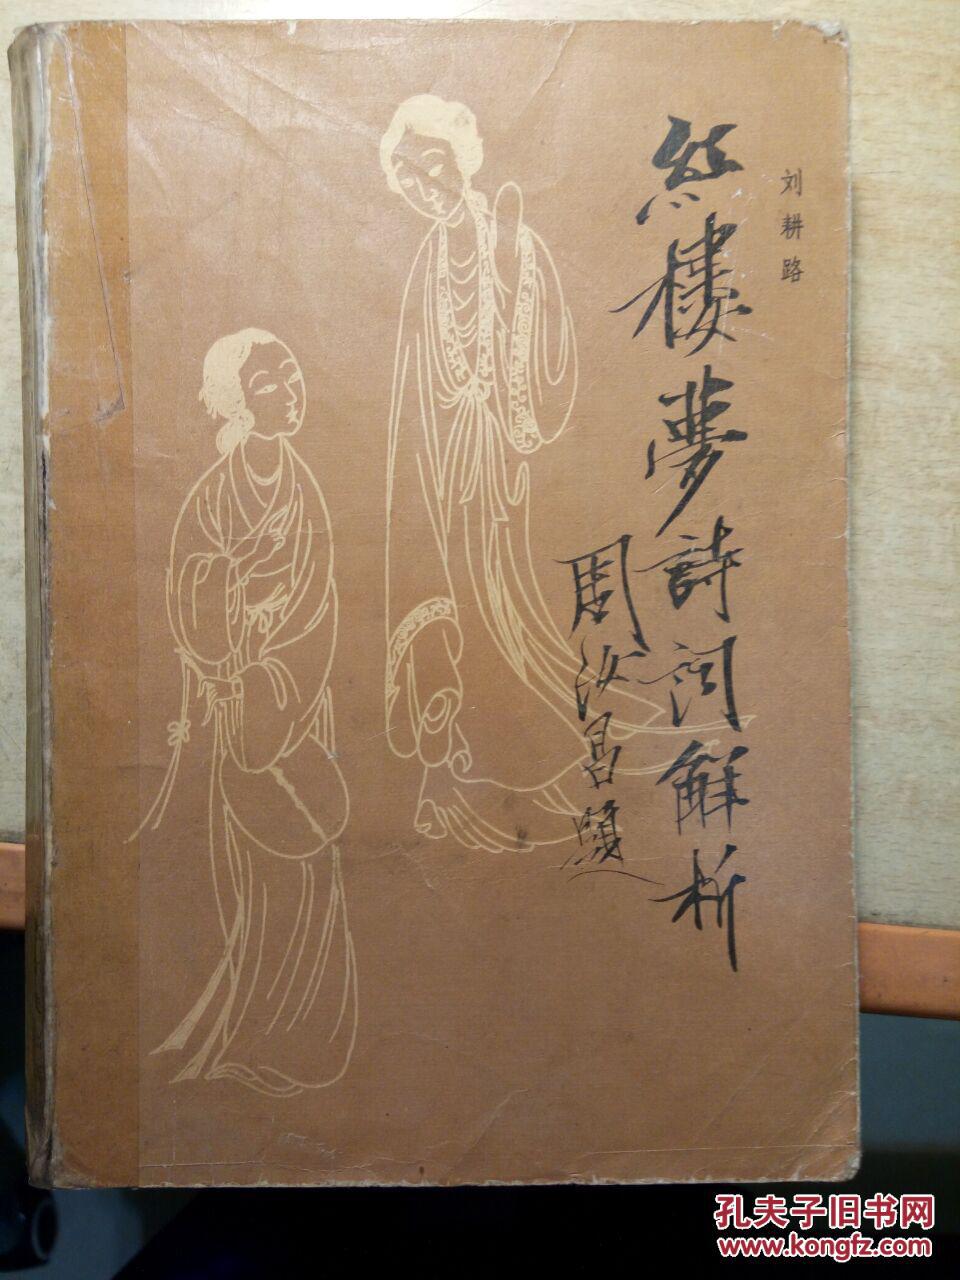 刘耕路
紅樓夢詩词解析
周汝昌題
孔夫子旧书网
www.kongfz.com